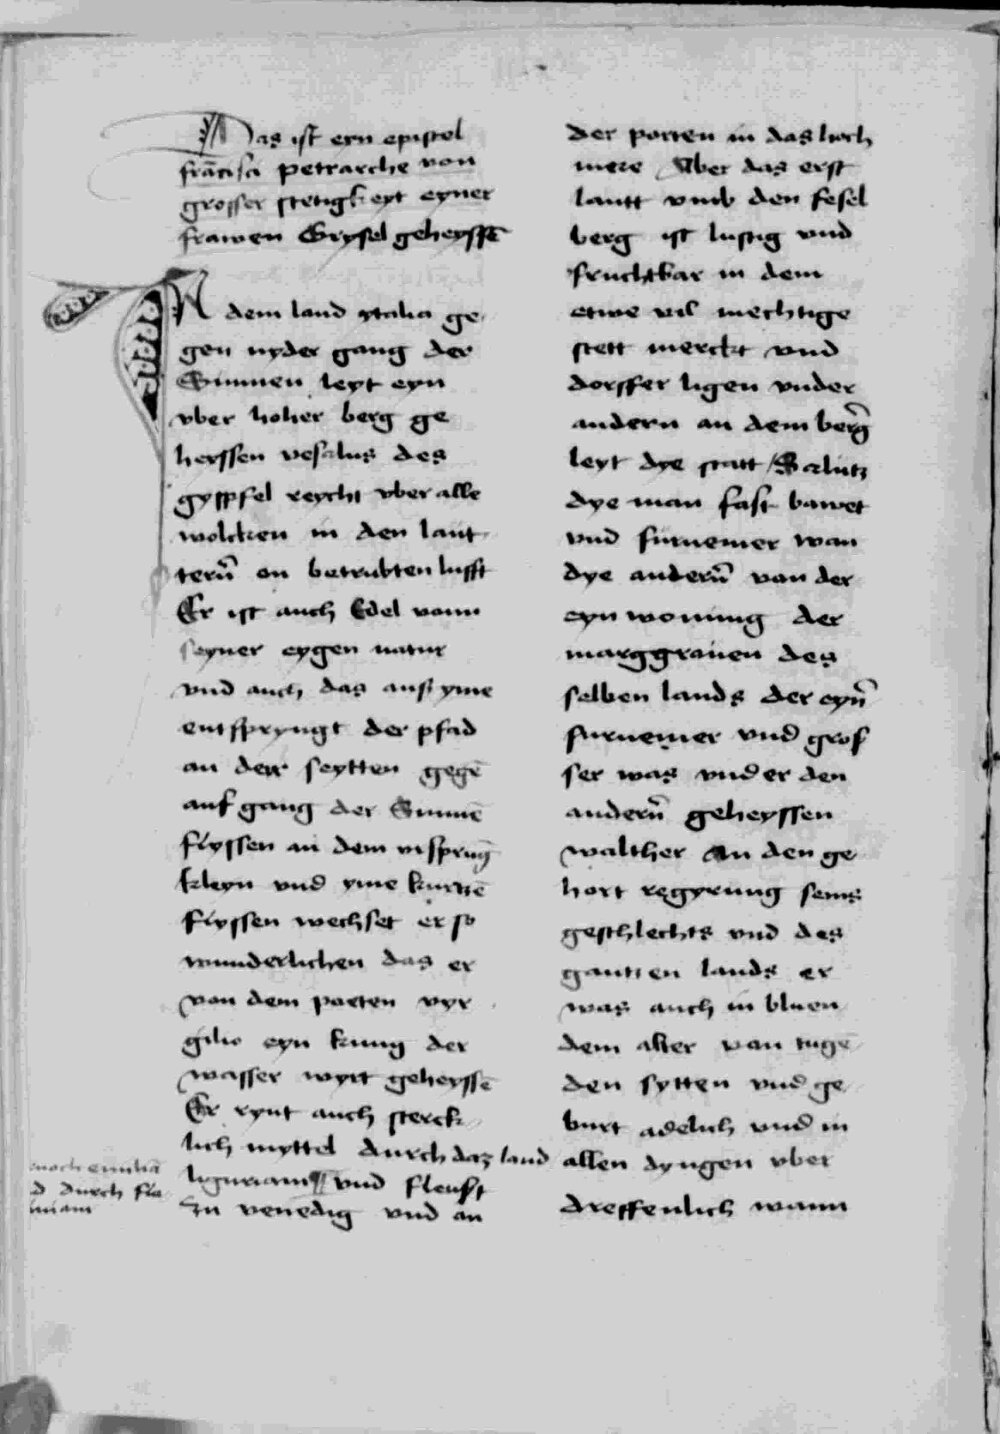 Das ist eyn epistel
francisci petrarche von
grosser stetigkeyt eyner
frawen Grysel geheyssē
IN dem land ytalia ge
gen nyder gang der
Sunnen leyt eyn
vber hoher berg ge
heyssen vesalus des
gyppfel reycht vber alle
wolcken in den laut
terñ on betrubten lufft
Er ist auch Edel vonn
seyner eygen natur
vnd auch das auß yme
entspryngt der pfad
an derr seytten gegē
aufgang der Sunnē
flyssen an dem vrsprūg
kleyn vnd yme kurtzē
flyssen wechset er so
wunderlichen das er
von dem poeten vyr
gilio eyn kunig der
wasser wyrt geheyssē
Er rynt auch sterck
lich myttel durch daz land
liguriam vnd fleust
zu venedig vnd an
noch emiliā
d durch fla
iniam
der porten in das hoch
mere Aber das erst
lantt vmb den fesel
berg ist lustig vnd
fruchtbar in dem
etwe vil mechtige
stett merckt vnd
dorffer ligen vnder
andern an dem berg
leyt dye statt Salutz
dye man fast bawet
vnd furnemer wan
dye anderñ von der
eyn wonung der
marggrauen des
selben lands der eyñ
furnemer vnd gros
ser was vnder den
anderñ geheyssen
walther An den ge
hort regyrung seins
geschlechts vnd des
gantzen lands er
was auch in bluen
dem alter von tuge
den sytten vnd ge
burt adelich vnd in
allen dyngen vber
dreffenlich wann